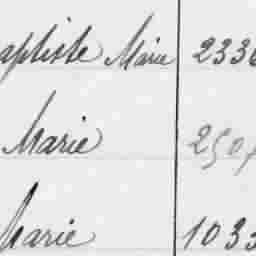 aptiste Marie 233
Marie 250
Marie 103